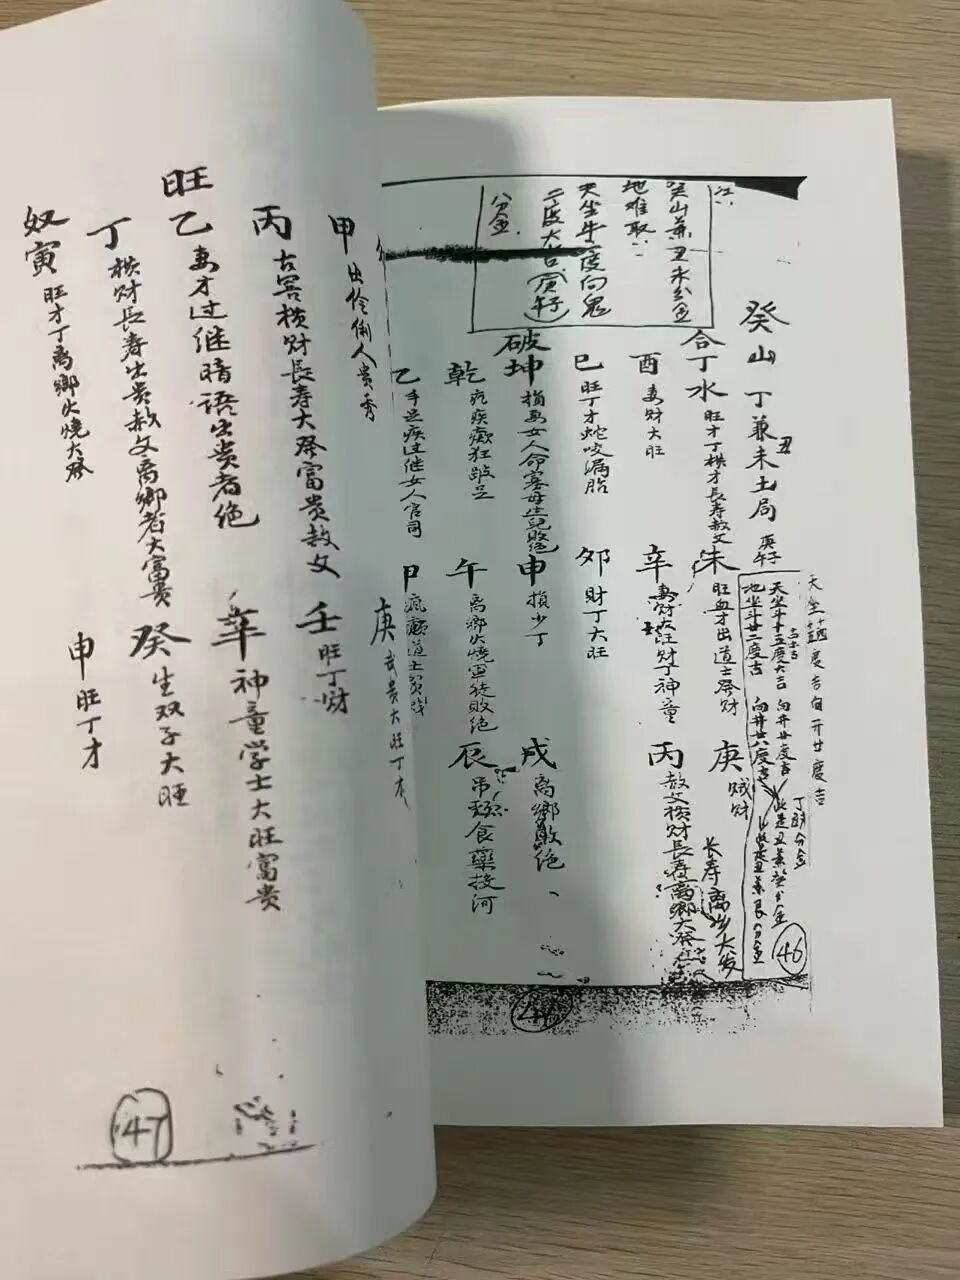 癸山丁兼未土局
丑
庚子
庚午
天坐
度吉向井廿度吉
天坐斗十五度大吉 向井廿度吉 此是丑兼癸分金
地坐斗廿二度吉 向井廿八度吉 此是丑兼艮分金
丁財分金
癸山兼丑未分金
地难取
天坐牛一度向鬼
二度大吉(庚午)
八分金
合
丁水 旺才丁横才長寿赦文
未 旺血才出道士癸财
庚 贼财
长寿离乡大发
酉 妻财大旺
辛 妻财大旺财丁神童
丙 赦文横财長寿離鄉大癸
巳 旺丁才蛇咬漏胎
卯 財丁大旺
破
坤 損妻女人命寡母生兒敗绝
申 損少丁
戌 离鄉敗绝
乾 疯疾癫狂跛足
午 离鄉火燒軍徒敗绝
辰 吊頸食藥投河
乙 手足疾过继女人官司
甲
甲 出伶俐人贵秀
庚 武贵大旺丁才
丙 古窖横财長寿大癸富贵赦文
壬 旺丁财
旺
乙 妻才过继暗语出贵者绝
辛 神童学士大旺富贵
丁 横财長寿出贵赦文离鄉者大富贵
癸 生双子大旺
奴
寅 旺才丁离鄉火燒大癸
申 旺丁才
46
47